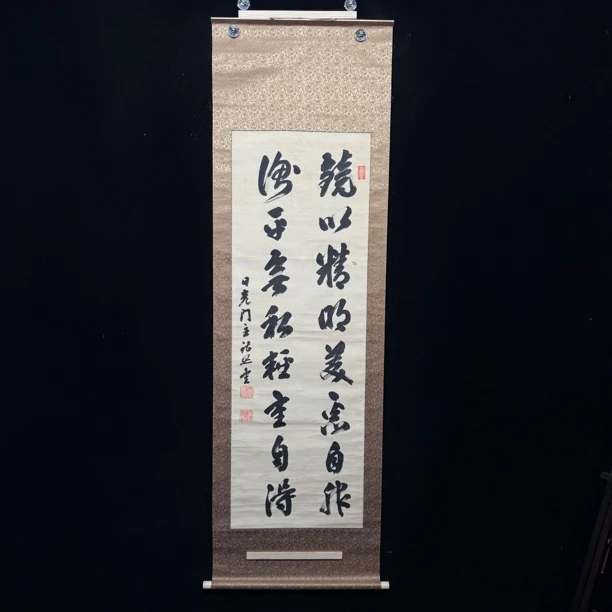 鏡以精明美惡自服
衡平無私輕重自得
日光門主諶照書